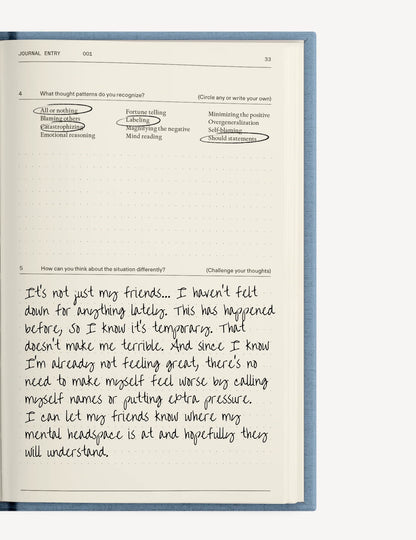 JOURNAL ENTRY 001
33
4 What thought patterns do you recognize? (Circle any or write your own)
All or nothing Fortune telling Minimizing the positive
Blaming others Labeling Overgeneralization
Catastrophizing Magnifying the negative Self-blaming
Emotional reasoning Mind reading Should statements
5 How can you think about the situation differently? (Challenge your thoughts)
It's not just my friends... I haven't felt
down for anything lately. This has happened
before, so I know it's temporary. That
doesn't make me terrible. And since I know
I'm already not feeling great, there's no
need to make myself feel worse by calling
myself names or putting extra pressure.
I can let my friends know where my
mental headspace is at and hopefully they
will understand.